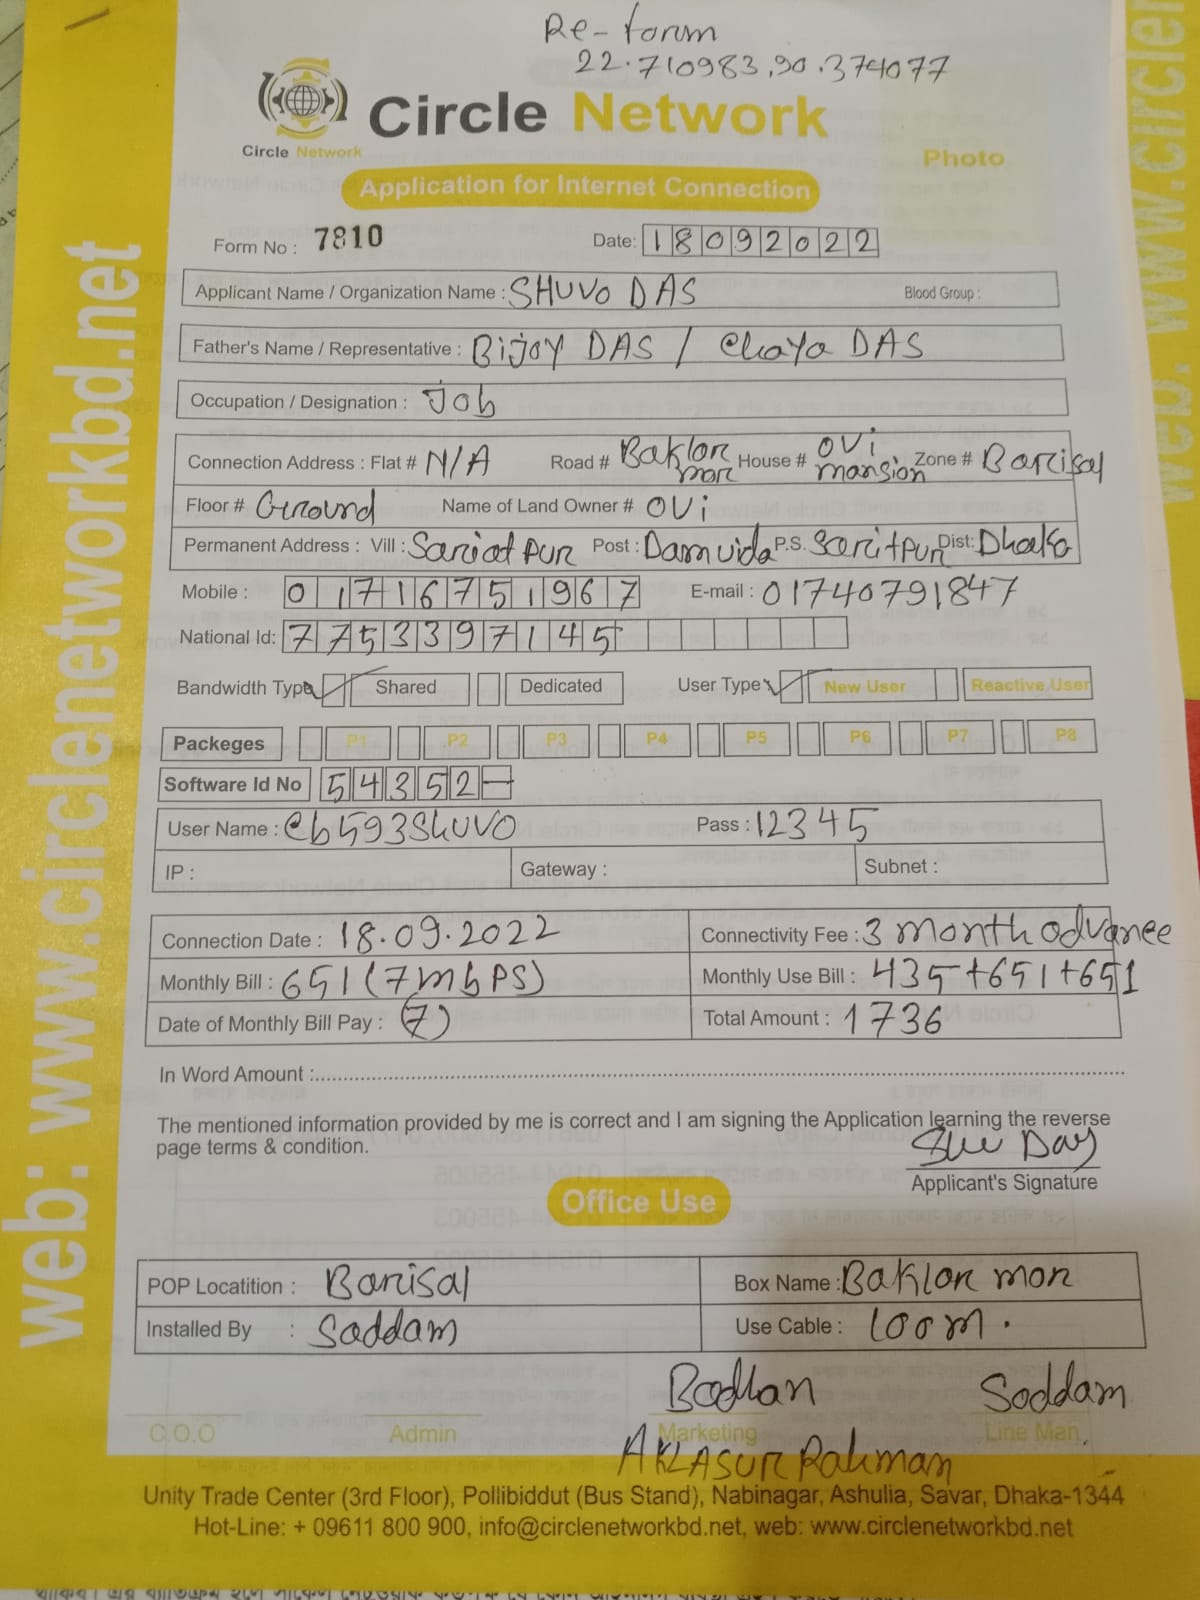 Re-form
22.710983,90.374077
Circle Network
Circle Network
Photo
Application for Internet Connection
Form No : 7810 Date: 18092022
Applicant Name / Organization Name : SHUVO DAS Blood Group :
Father's Name / Representative : Bijoy DAS / Chaya DAS
Occupation / Designation : Job
Connection Address : Flat # N/A Road # Baklor mor House # OVi mansion Zone # Barisal
Floor # Ground Name of Land Owner # OVi
Permanent Address : Vill : Sariat PUR Post : Damuida P.S. SaritPUR Dist: Dhaka
Mobile : 01716751967 E-mail : 01740791847
National Id: 7753397145
Bandwidth Type Shared Dedicated User Type New User Reactive User
Packeges P1 P2 P3 P4 P5 P6 P7 P8
Software Id No 54352-
User Name : cb593Shuvo Pass : 12345
IP : Gateway : Subnet :
Connection Date : 18.09.2022 Connectivity Fee : 3 month advance
Monthly Bill : 651 (7mbPS) Monthly Use Bill : 435+651+651
Date of Monthly Bill Pay : (7) Total Amount : 1736
In Word Amount :
The mentioned information provided by me is correct and I am signing the Application learning the reverse
page terms & condition.
Applicant's Signature
Office Use
POP Locatition : Barisal Box Name : Baklor mor
Installed By : Saddam Use Cable : 100m.
Bodhan Soddam
C.O.O Admin Marketing Line Man
AKLASUR Rahman
Unity Trade Center (3rd Floor), Pollibiddut (Bus Stand), Nabinagar, Ashulia, Savar, Dhaka-1344
Hot-Line: + 09611 800 900, info@circlenetworkbd.net, web: www.circlenetworkbd.net
web: www.circlenetworkbd.net
web: www.circle